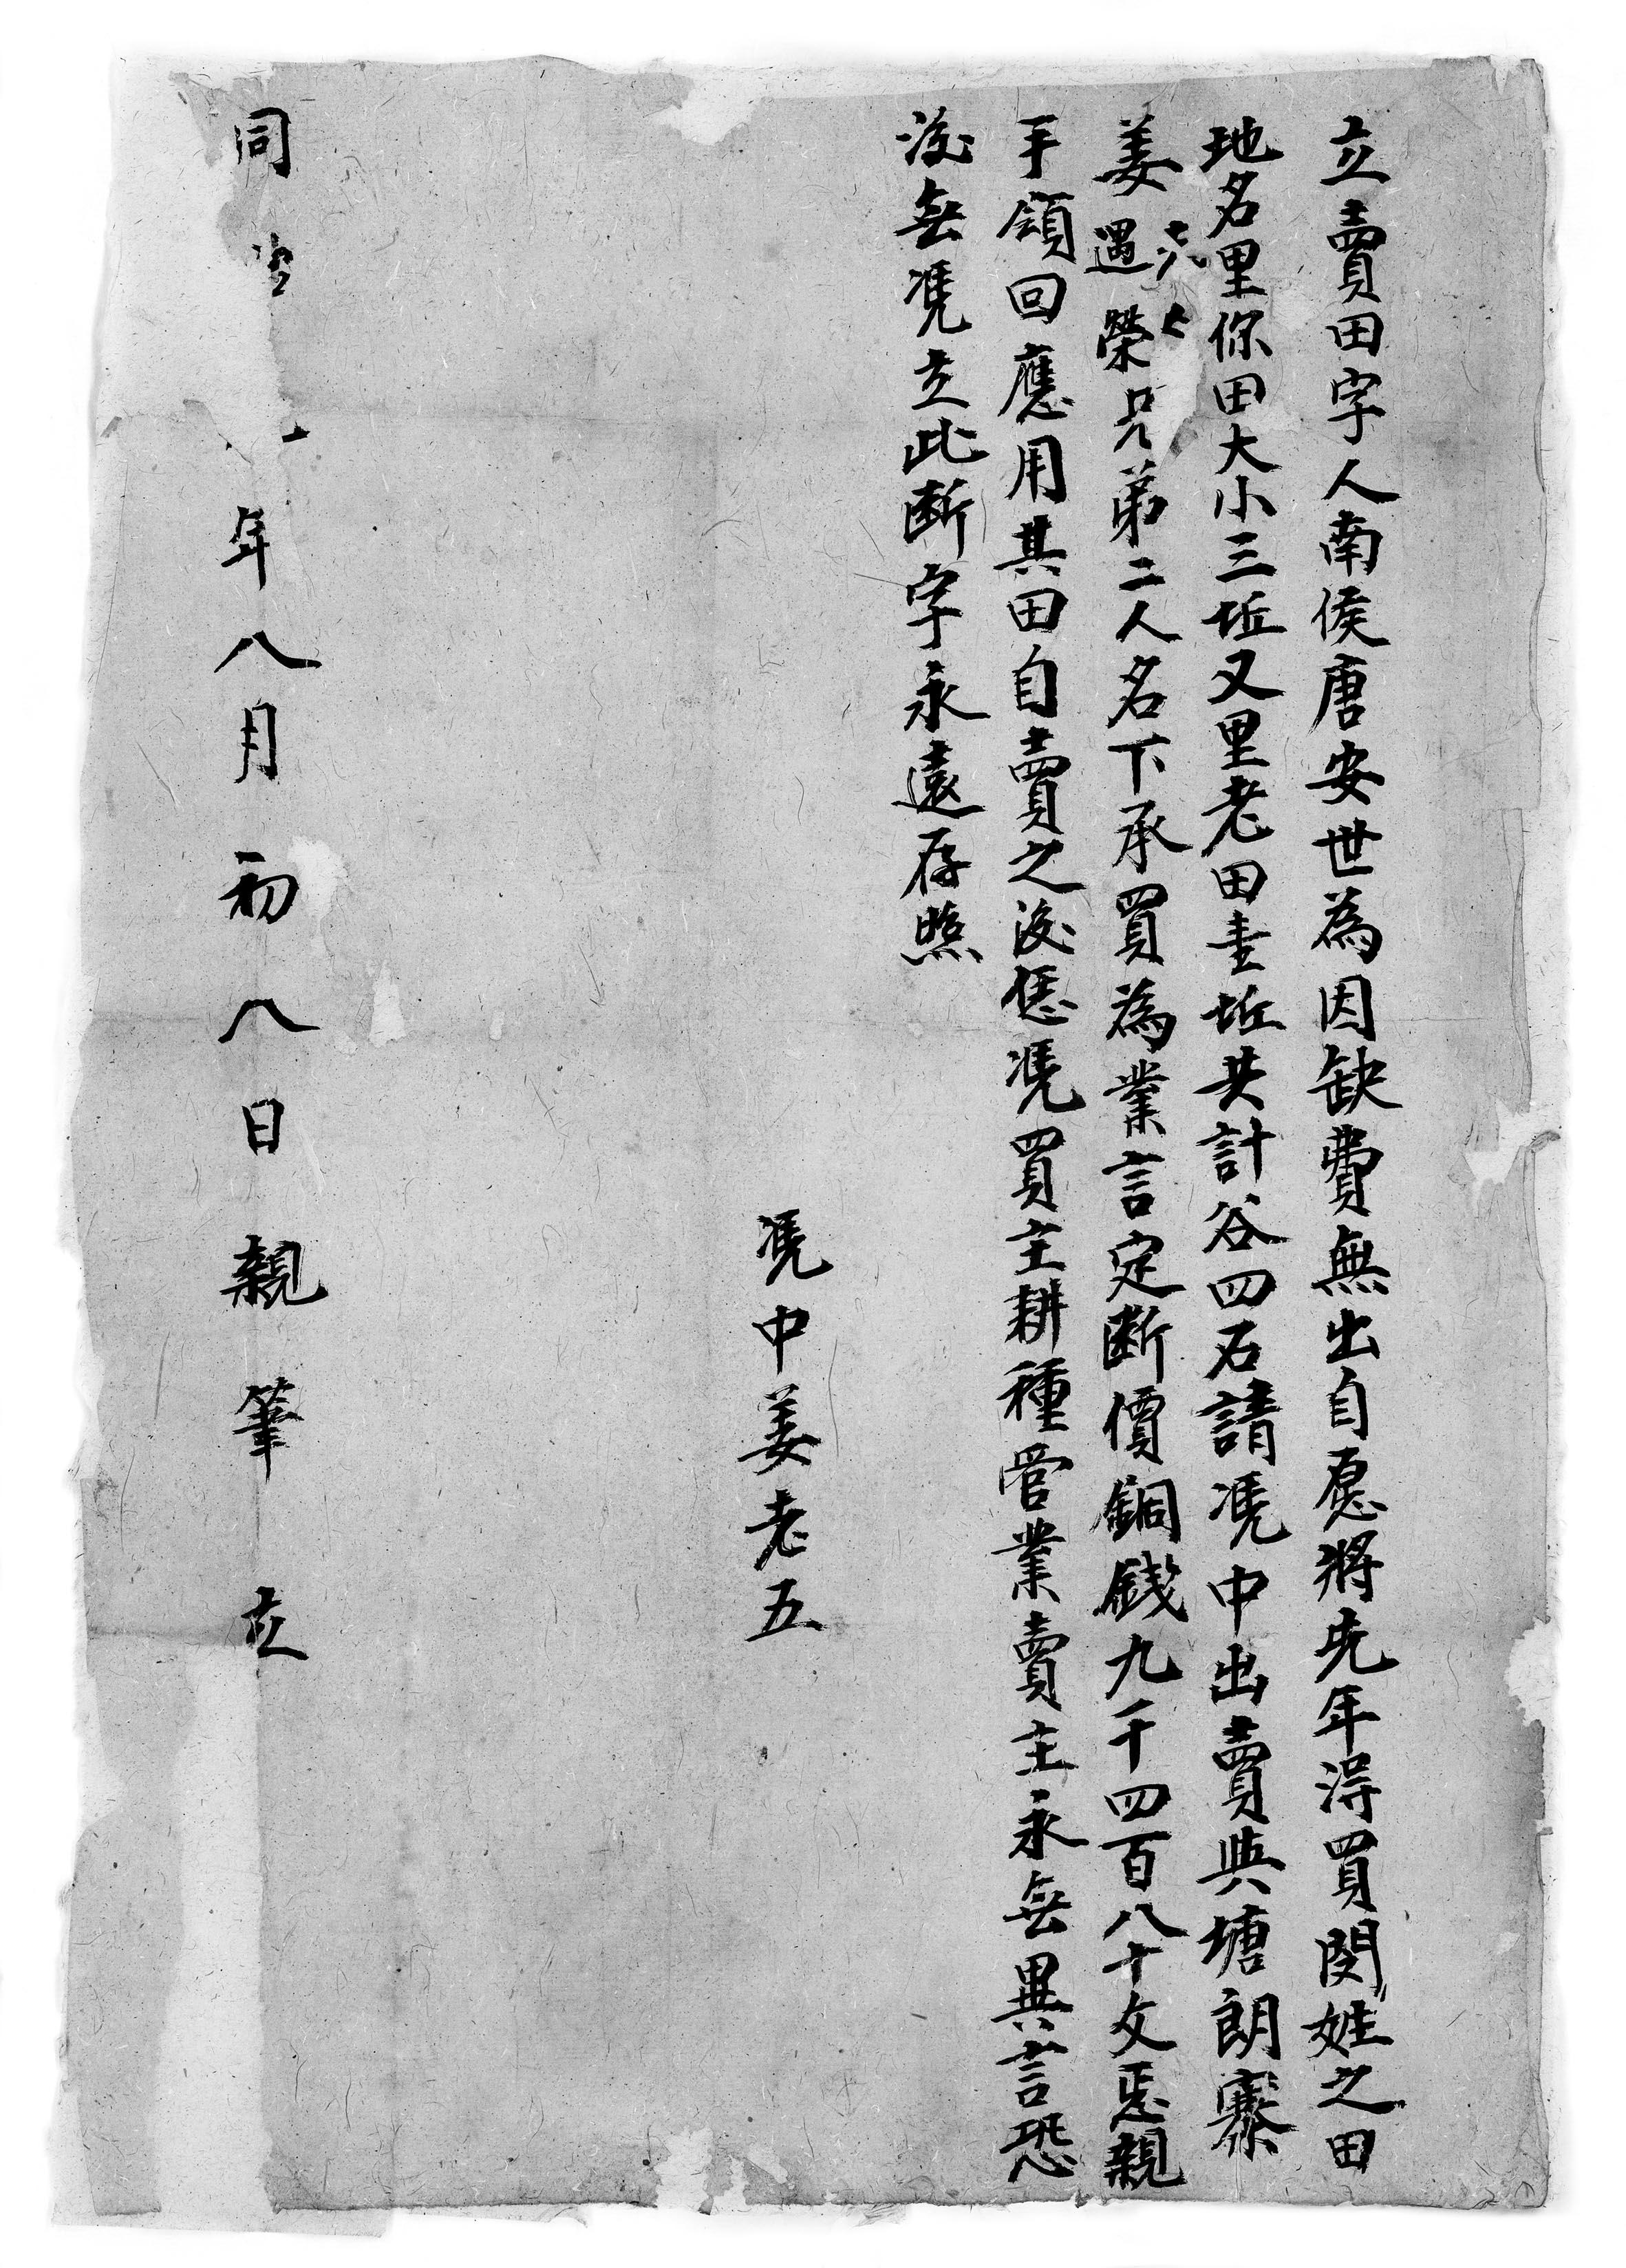 立賣田字人南侯唐安世為因缺費無出自愿將先年淂買閔姓之田
地名里你田大小三坵又里老田壹坵共計谷四石請凴中出賣與塘朗寨
姜遇榮兄弟二人名下承買為業言定断價銅錢九千四百八十文恁親
手領回應用其田自賣之後恁凴買主耕種管業賣主永無異言恐
後無凴立此断字永遠存照
凴中姜老五
同年八月初八日親筆立